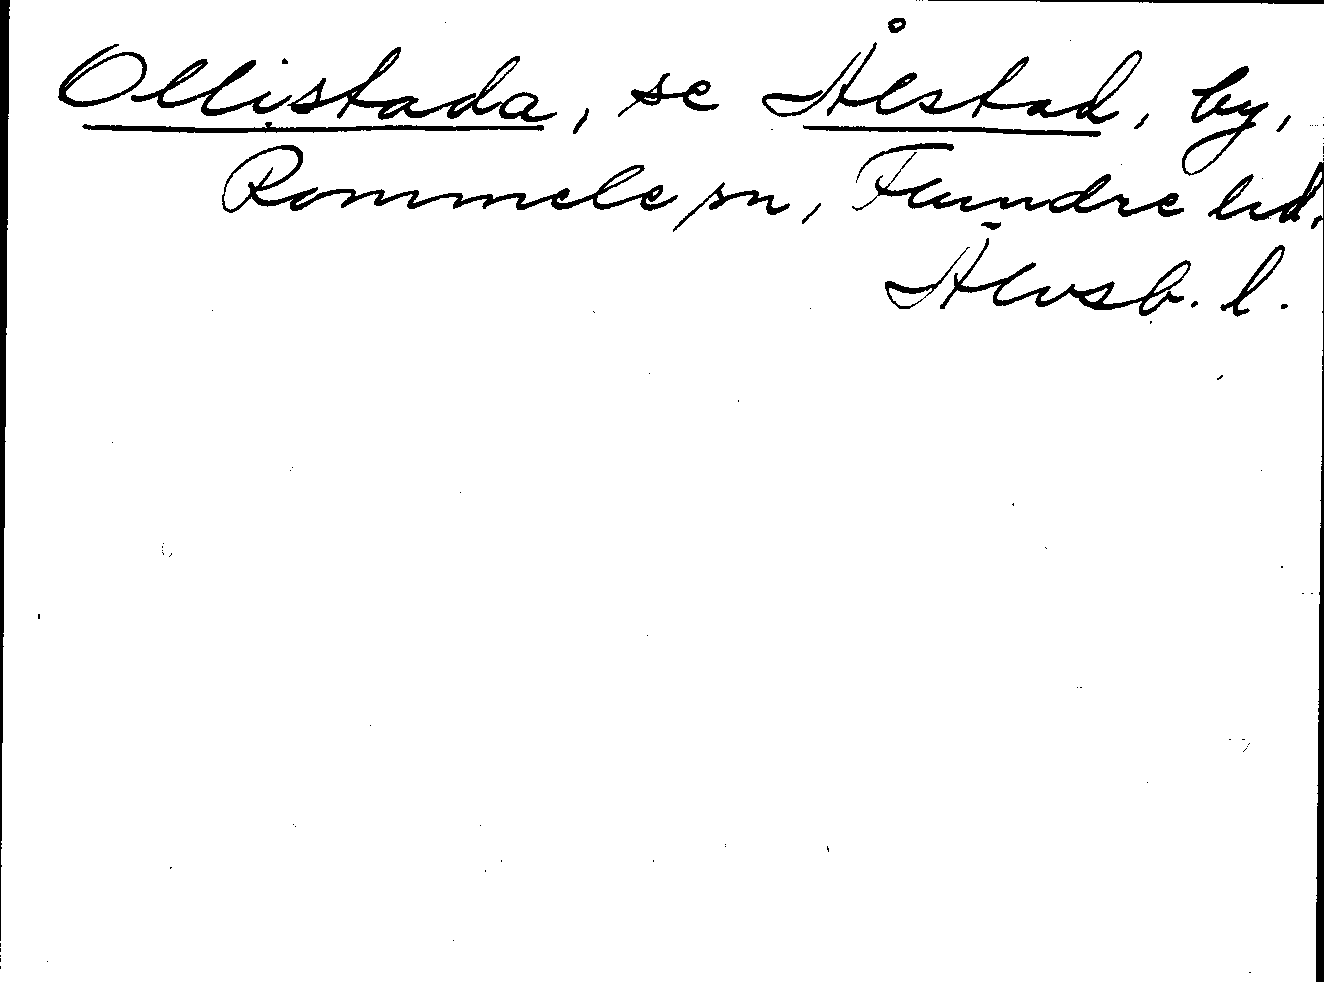 Ollistada, se Ålstad, by,
Rommele sn, Flundre hd.
Älvsb. l.